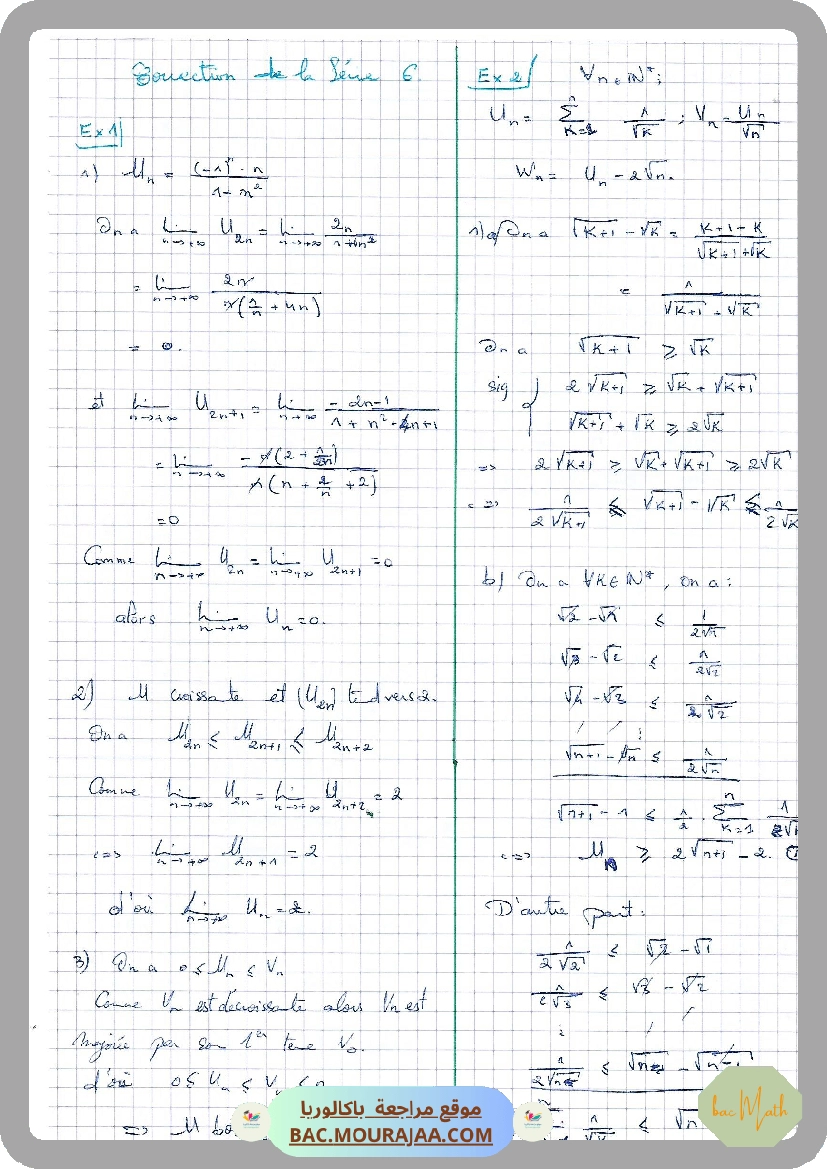 Correction de la Série 6.
Ex 1
1) U_n = (-1)^n · n / (1 - n²)
On a lim_{n→+∞} U_{2n} = lim_{n→+∞} 2n / (1+4n²)
= lim_{n→+∞} 2n / n(1/n + 4n)
= 0.
et lim_{n→+∞} U_{2n+1} = lim_{n→+∞} (-2n-1) / (1 + n² + 4n+1)
= lim_{n→+∞} -n(2 + 1/n) / n(n + 2/n + 2)
= 0
Comme lim_{n→+∞} U_{2n} = lim_{n→+∞} U_{2n+1} = 0
alors lim_{n→+∞} U_n = 0.
2) U croissante et (U_{2n}) tend vers 2.
On a U_{2n} ≤ U_{2n+1} ≤ U_{2n+2}
Comme lim_{n→+∞} U_{2n} = lim_{n→+∞} U_{2n+2} = 2
<=> lim_{n→+∞} U_{2n+1} = 2
d'où lim_{n→+∞} U_n = 2.
3) On a 0 ≤ U_n ≤ V_n
Comme V_n est décroissante alors V_n est
majorée par son 1er terme V_0.
d'où 0 ≤ U_n ≤ V_n ≤
=> U bo
Ex 2 ∀n∈ℕ*;
U_n = Σ_{K=1}^{n} 1/√K ; V_n = U_n/√n
W_n = U_n - 2√n.
1) a) On a √(K+1) - √K = (K+1-K) / (√(K+1)+√K)
= 1 / (√(K+1) + √K)
On a √(K+1) ≥ √K
sig 2√(K+1) ≥ √K + √(K+1)
√(K+1) + √K ≥ 2√K
=> 2√(K+1) ≥ √K + √(K+1) ≥ 2√K
<=> 1/(2√(K+1)) ≤ √(K+1) - √K ≤ 1/(2√K
b) On a ∀K∈ℕ*, on a :
√2 - √1 ≤ 1/(2√1)
√3 - √2 ≤ 1/(2√2)
√4 - √3 ≤ 1/(2√2)
√(n+1) - √n ≤ 1/(2√n)
√(n+1) - 1 ≤ 1/2 · Σ_{K=1}^{n} 1/√K
<=> U_n ≥ 2√(n+1) - 2. ①
D'autre part :
1/(2√2) ≤ √2 - √1
1/(2√3) ≤ √3 - √2
1/(2√n) ≤ √n - √(n-1)
1/√K ≤ √n
موقع مراجعة باكالوريا
BAC.MOURAJAA.COM
bac Math